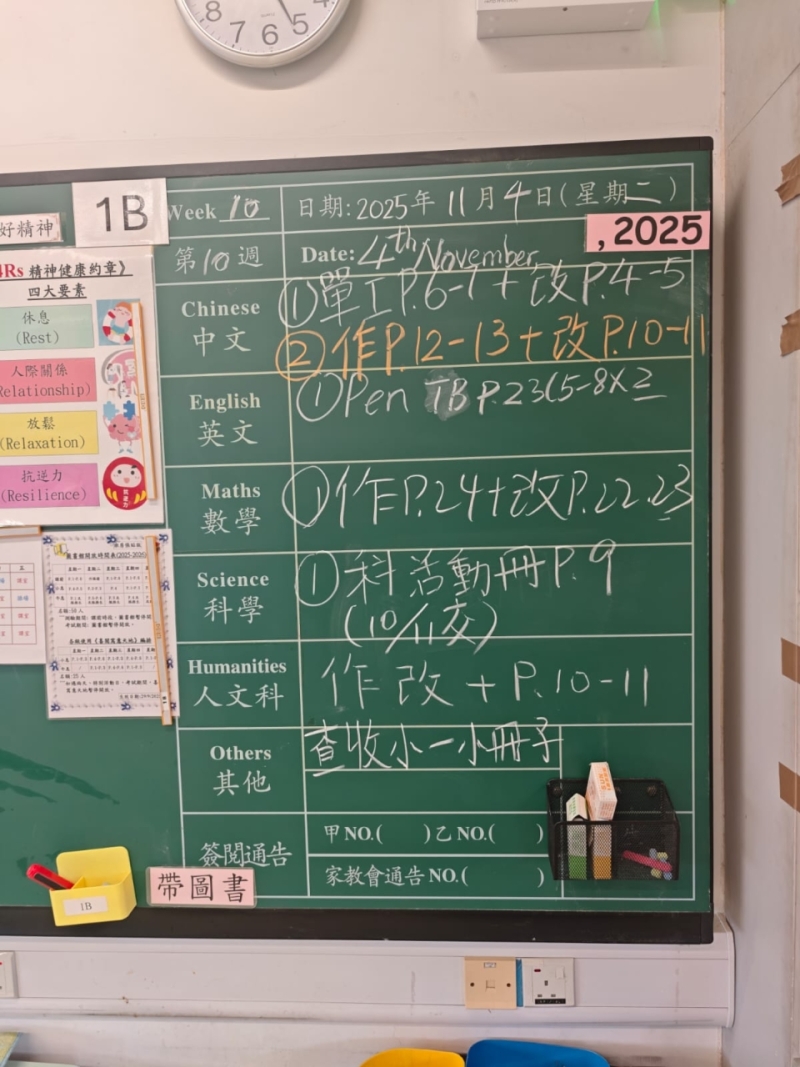 8 7 6 5
好精神
1B
Week 10
日期: 2025年 11月 4日(星期二)
第10週
Date: 4th November
, 2025
Chinese
中文
① 單工P.6-7 + 改P.4-5
② 作P.12-13+改P.10-11
English
英文
① Pen TB P.23(5-8)x2
Maths
數學
① 作P.24+改P.22,23
Science
科學
① 科活動冊P.9
(10/11交)
Humanities
人文科
作改 + P.10-11
Others
其他
查收小一小冊子
簽閱通告
甲NO.( )乙NO.( )
家教會通告NO.( )
4Rs 精神健康約章》
四大要素
休息
(Rest)
人際關係
Relationship)
放鬆
(Relaxation)
抗逆力
(Resilience)
圖書館開放時間表(2025-2026)
1B
帶圖書